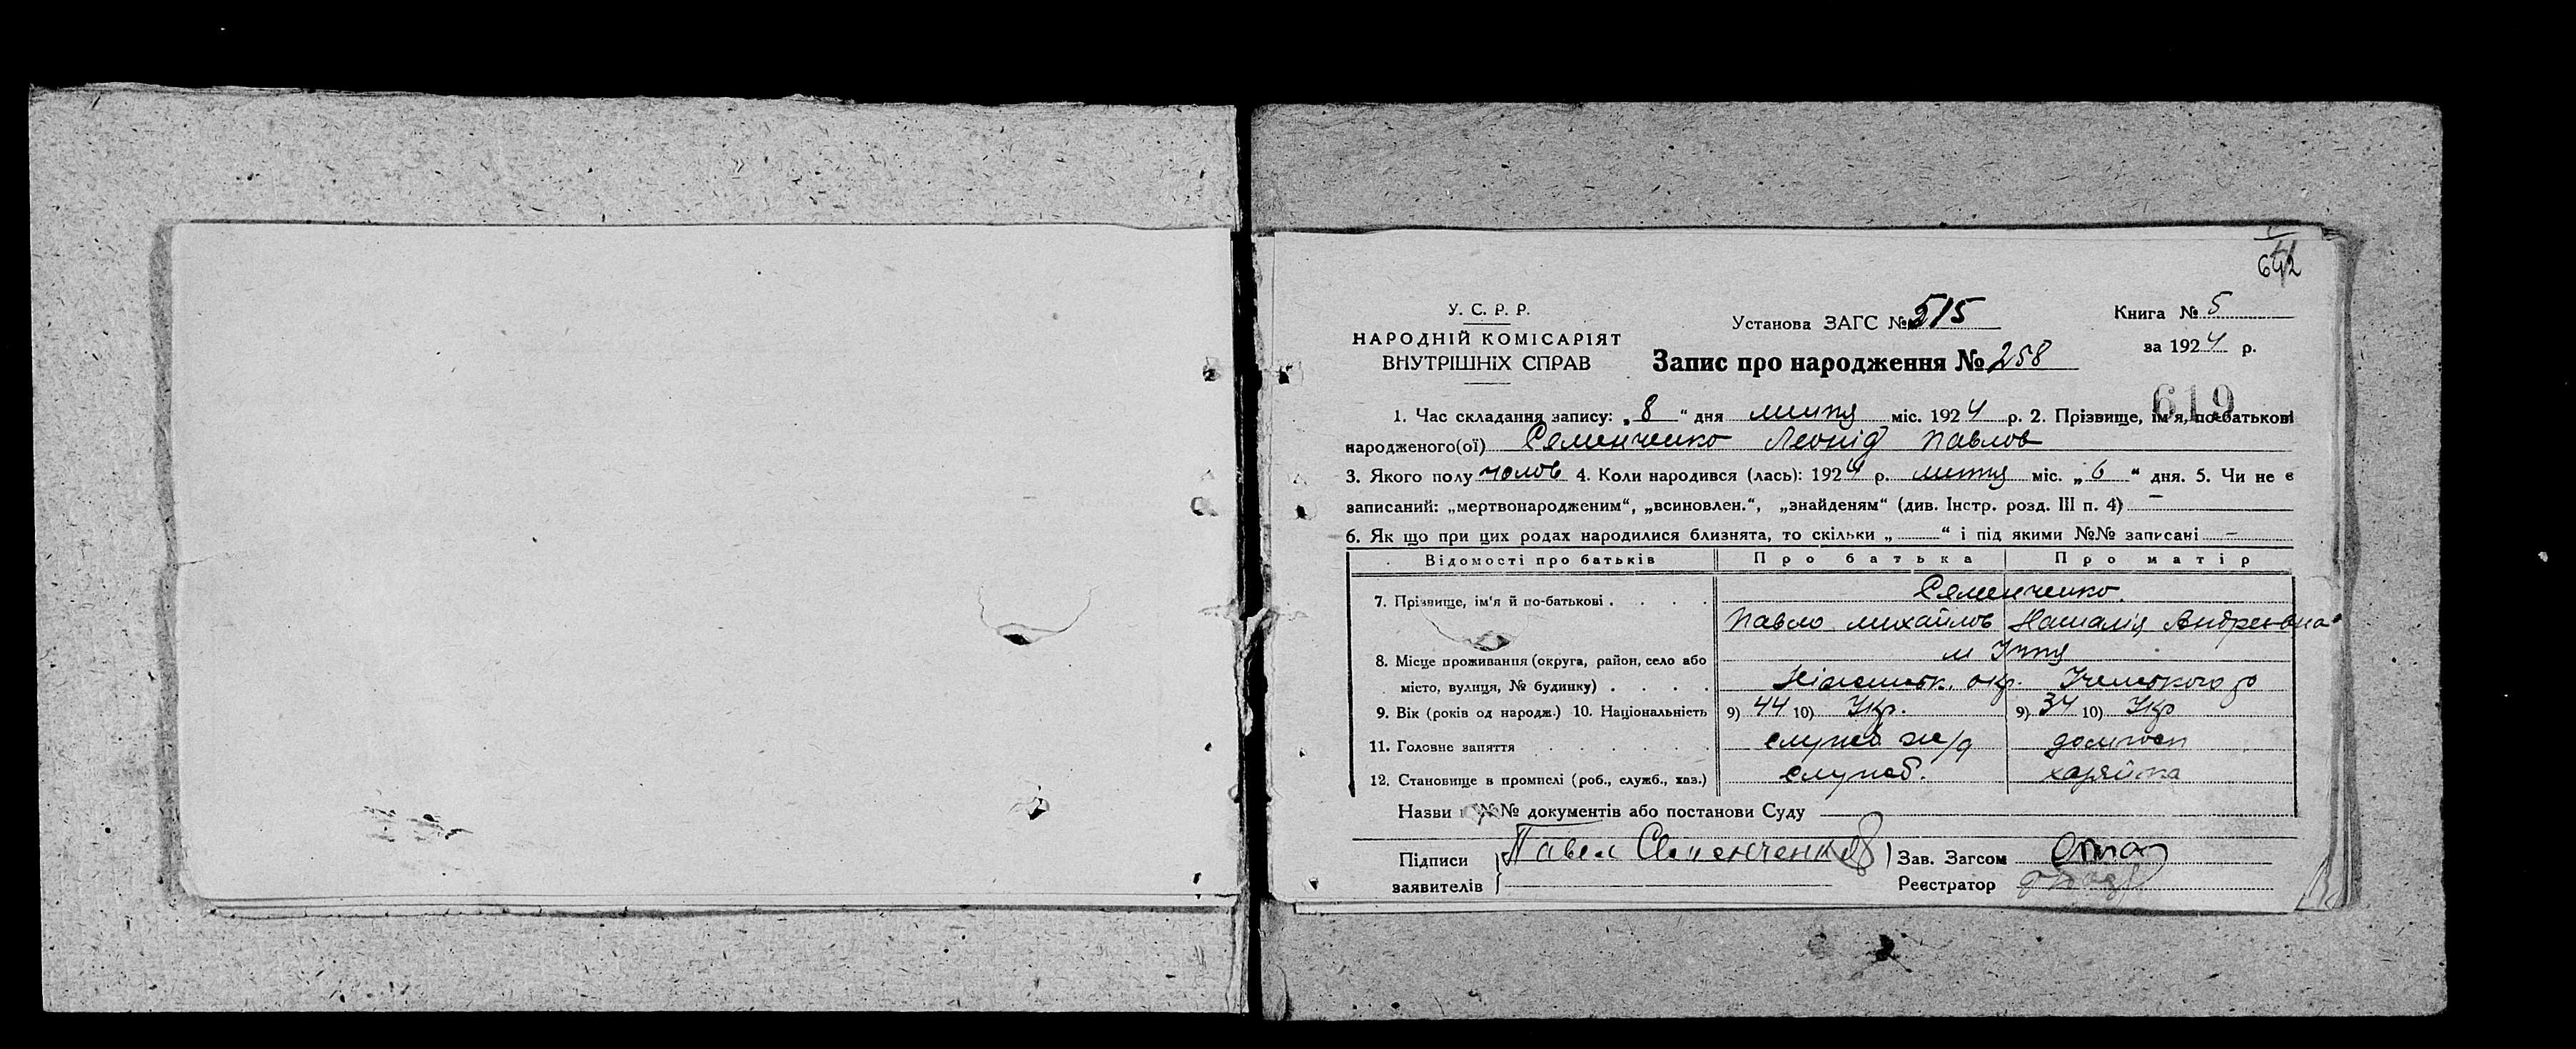 642
У. С. Р. Р.
НАРОДНІЙ КОМІСАРІЯТ
ВНУТРІШНІХ СПРАВ
Установа ЗАГС № 515
Книга № 5
за 1924 р.
Запис про народження № 258
619
1. Час складання запису: „8“ дня липця міс. 1924 р. 2. Прізвище, ім'я, по-батькові
народженого(ої) Семенченко Леонід Павлов
3. Якого полу чолов 4. Коли народився (лась): 1924 р. липця міс. „6“ дня. 5. Чи не є
записаний: „мертвонародженим“, „всиновлен.“, „знайденям“ (див. Інстр. розд. III п. 4) –
6. Як що при цих родах народилися близнята, то скільки „ “ і під якими №№ записані –
Відомості про батьків Про батька Про матір
7. Прізвище, ім'я й по-батькові . . . . Семенченко.
Павло михайлов Наталія Андреевна
8. Місце проживання (округа, район, село або м Ічня
місто, вулиця, № будинку) . . . . Ніженськ. окр. Іченського р
9. Вік (років од народж.) 10. Національність 9) 44 10) Укр. 9) 34 10) Укр
11. Головне заняття . . . . . . служб ж/д домгосп
12. Становище в промислі (роб., служб., хаз.) служб. хазяйка
Назви і №№ документів або постанови Суду
Підписи Павел Семенченков Зав. Загсом
заявителів Реєстратор